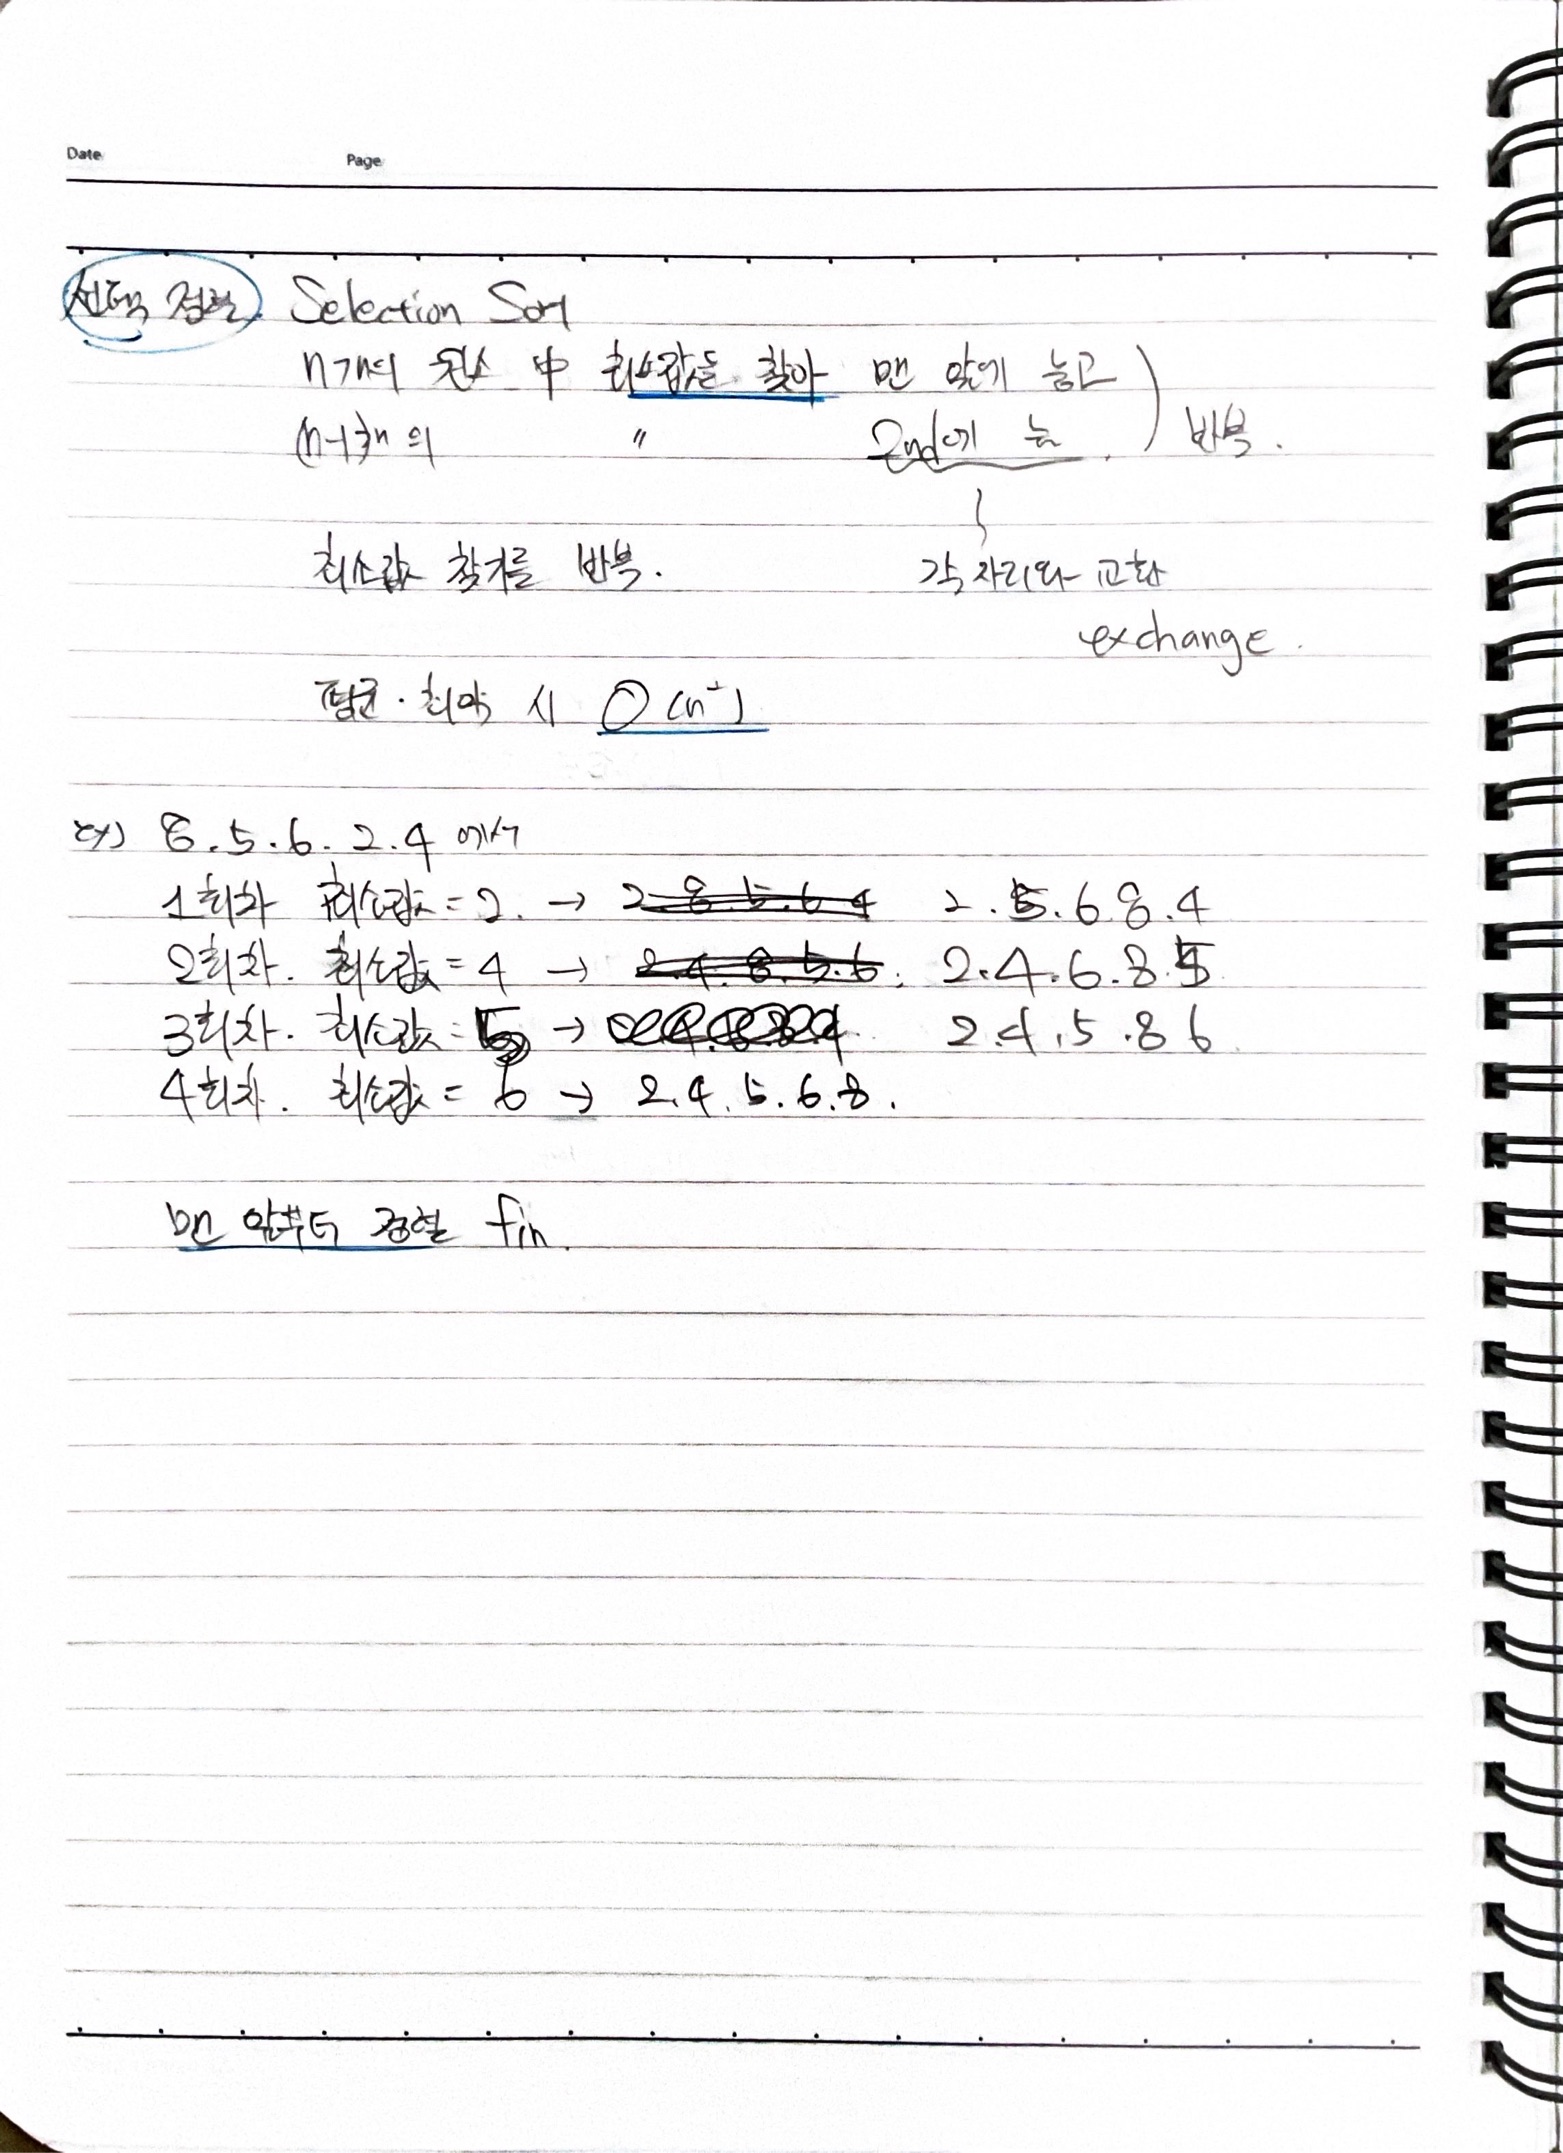 Date Page
선택 정렬. Selection Sort
n개의 원소 中 최소값을 찾아 맨 앞에 놓고
(n-1)개의 〃 2nd에 놈. ) 반복.
최소값 찾기를 반복. 각 자리와 교환
exchange.
평균·최악 시 O(n²)
ex) 8.5.6.2.4 에서
1회차 최소값=2. → 2.8.5.6.4 2.5.6.8.4
2회차. 최소값=4 → 2.4.8.5.6. 2.4.6.8.5
3회차. 최소값=5 → 2.4.5.8.6
4회차. 최소값=6 → 2.4.5.6.8.
맨 앞부터 정렬 fin.